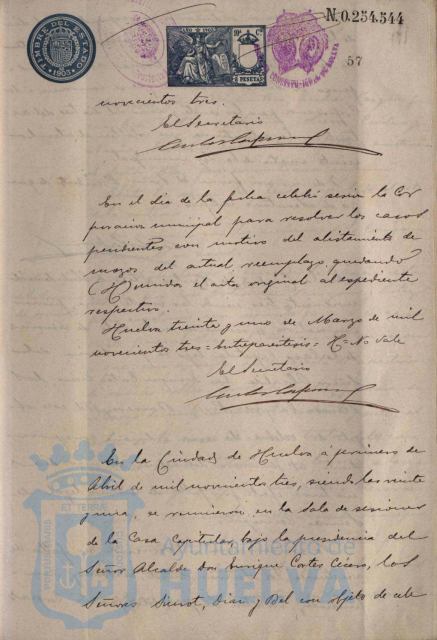 TIMBRE DEL ESTADO
1903
Nº 0.254.544
AÑO DE 1903
10ª Cª
PESETA
57
novecientos tres.
El Secretario
En el dia de la fecha celebró sesión la Cor
poración municipal para resolver los casos
pendientes con motivo del alistamiento de
mozos del actual reemplazo, quedando
(H) unida el acta original al expediente
respectivo.
Huelva treinta y uno de Marzo de mil
novecientos tres = Entreparentesis = H = No vale
El Secretario
En la Ciudad de Huelva á primero de
Abril de mil novecientos tres, siendo las veinte
y una, se reunieron en la Sala de sesiones
de la Casa Capitular bajo la presidencia del
Señor Alcalde Don Enrique Cortes Cicero, los
Señores Siurot, Diaz y Bel con objeto de cele
Ayuntamiento de
HUELVA